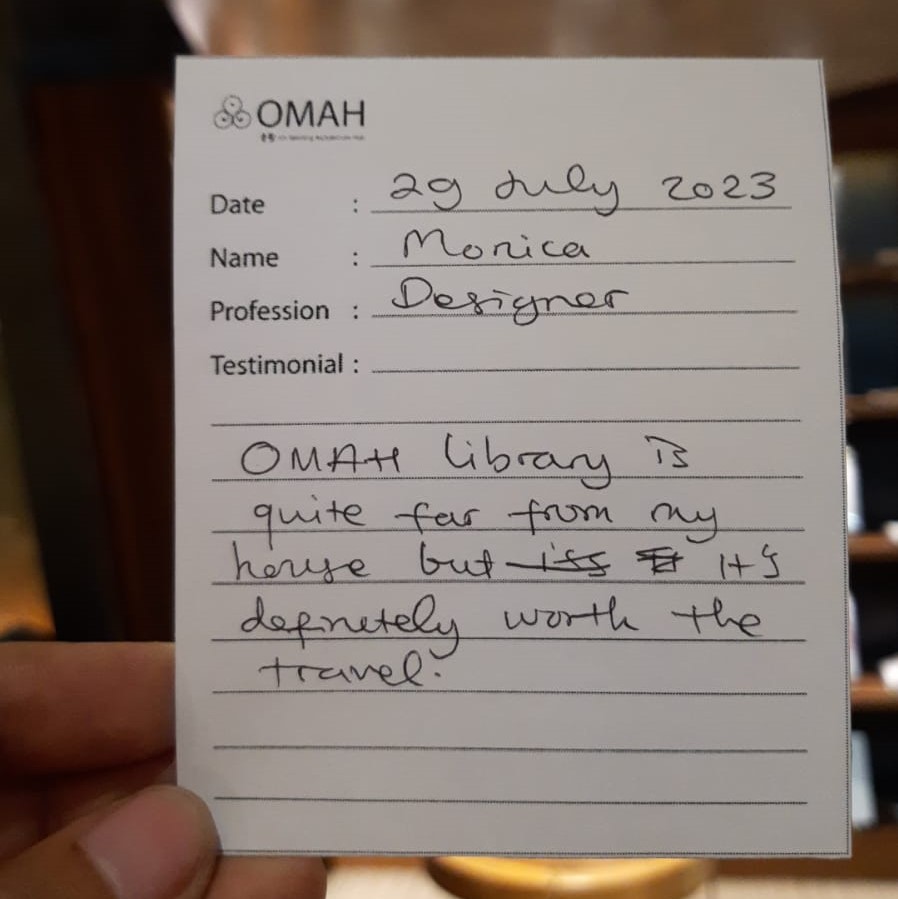 OMAH
Date : 29 July 2023
Name : Monica
Profession : Designer
Testimonial :
OMAH library is
quite far from my
house but it's
definetely worth the
travel.